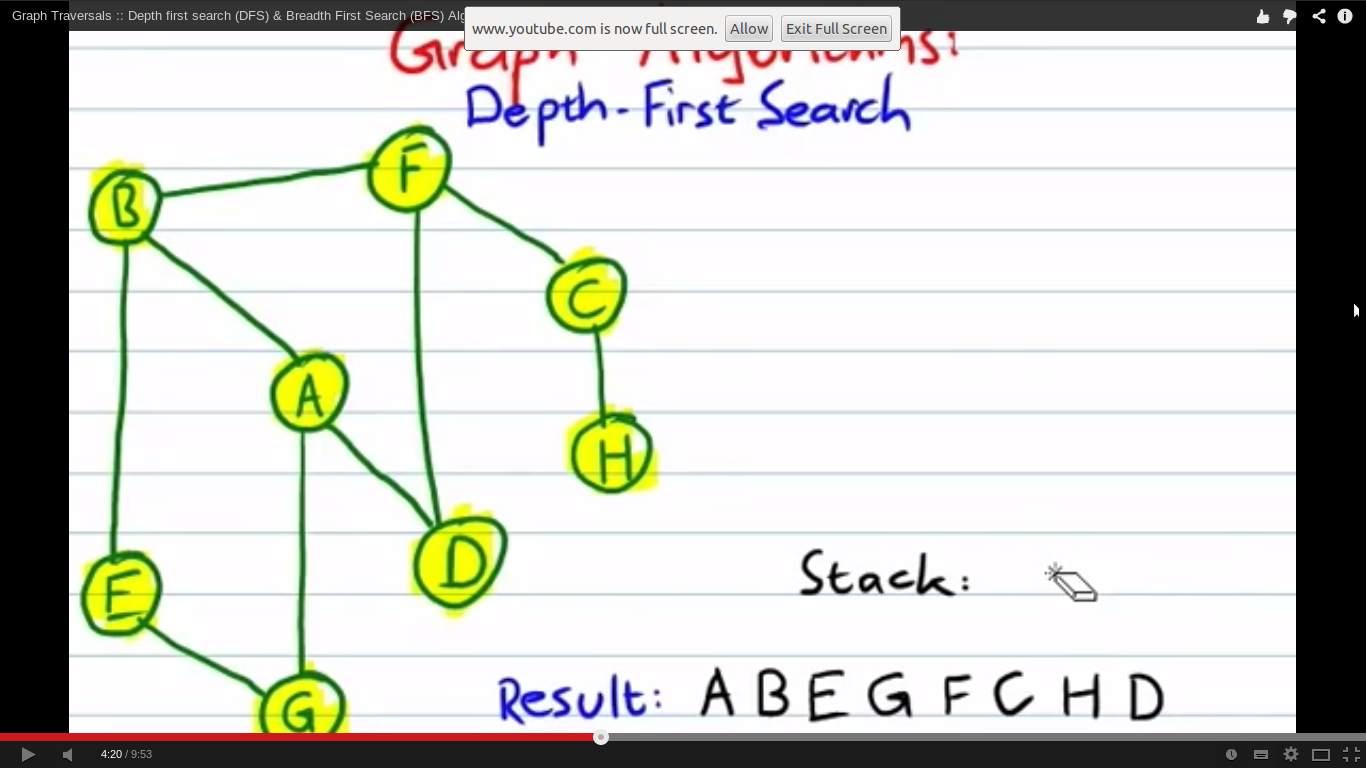 Graph Traversals :: Depth first search (DFS) & Breadth First Search (BFS)
www.youtube.com is now full screen. Allow Exit Full Screen
Graph Algorithms:
Depth-First Search
F
B
C
A
H
D
E
G
Stack:
Result: A B E G F C H D
4:20 / 9:53